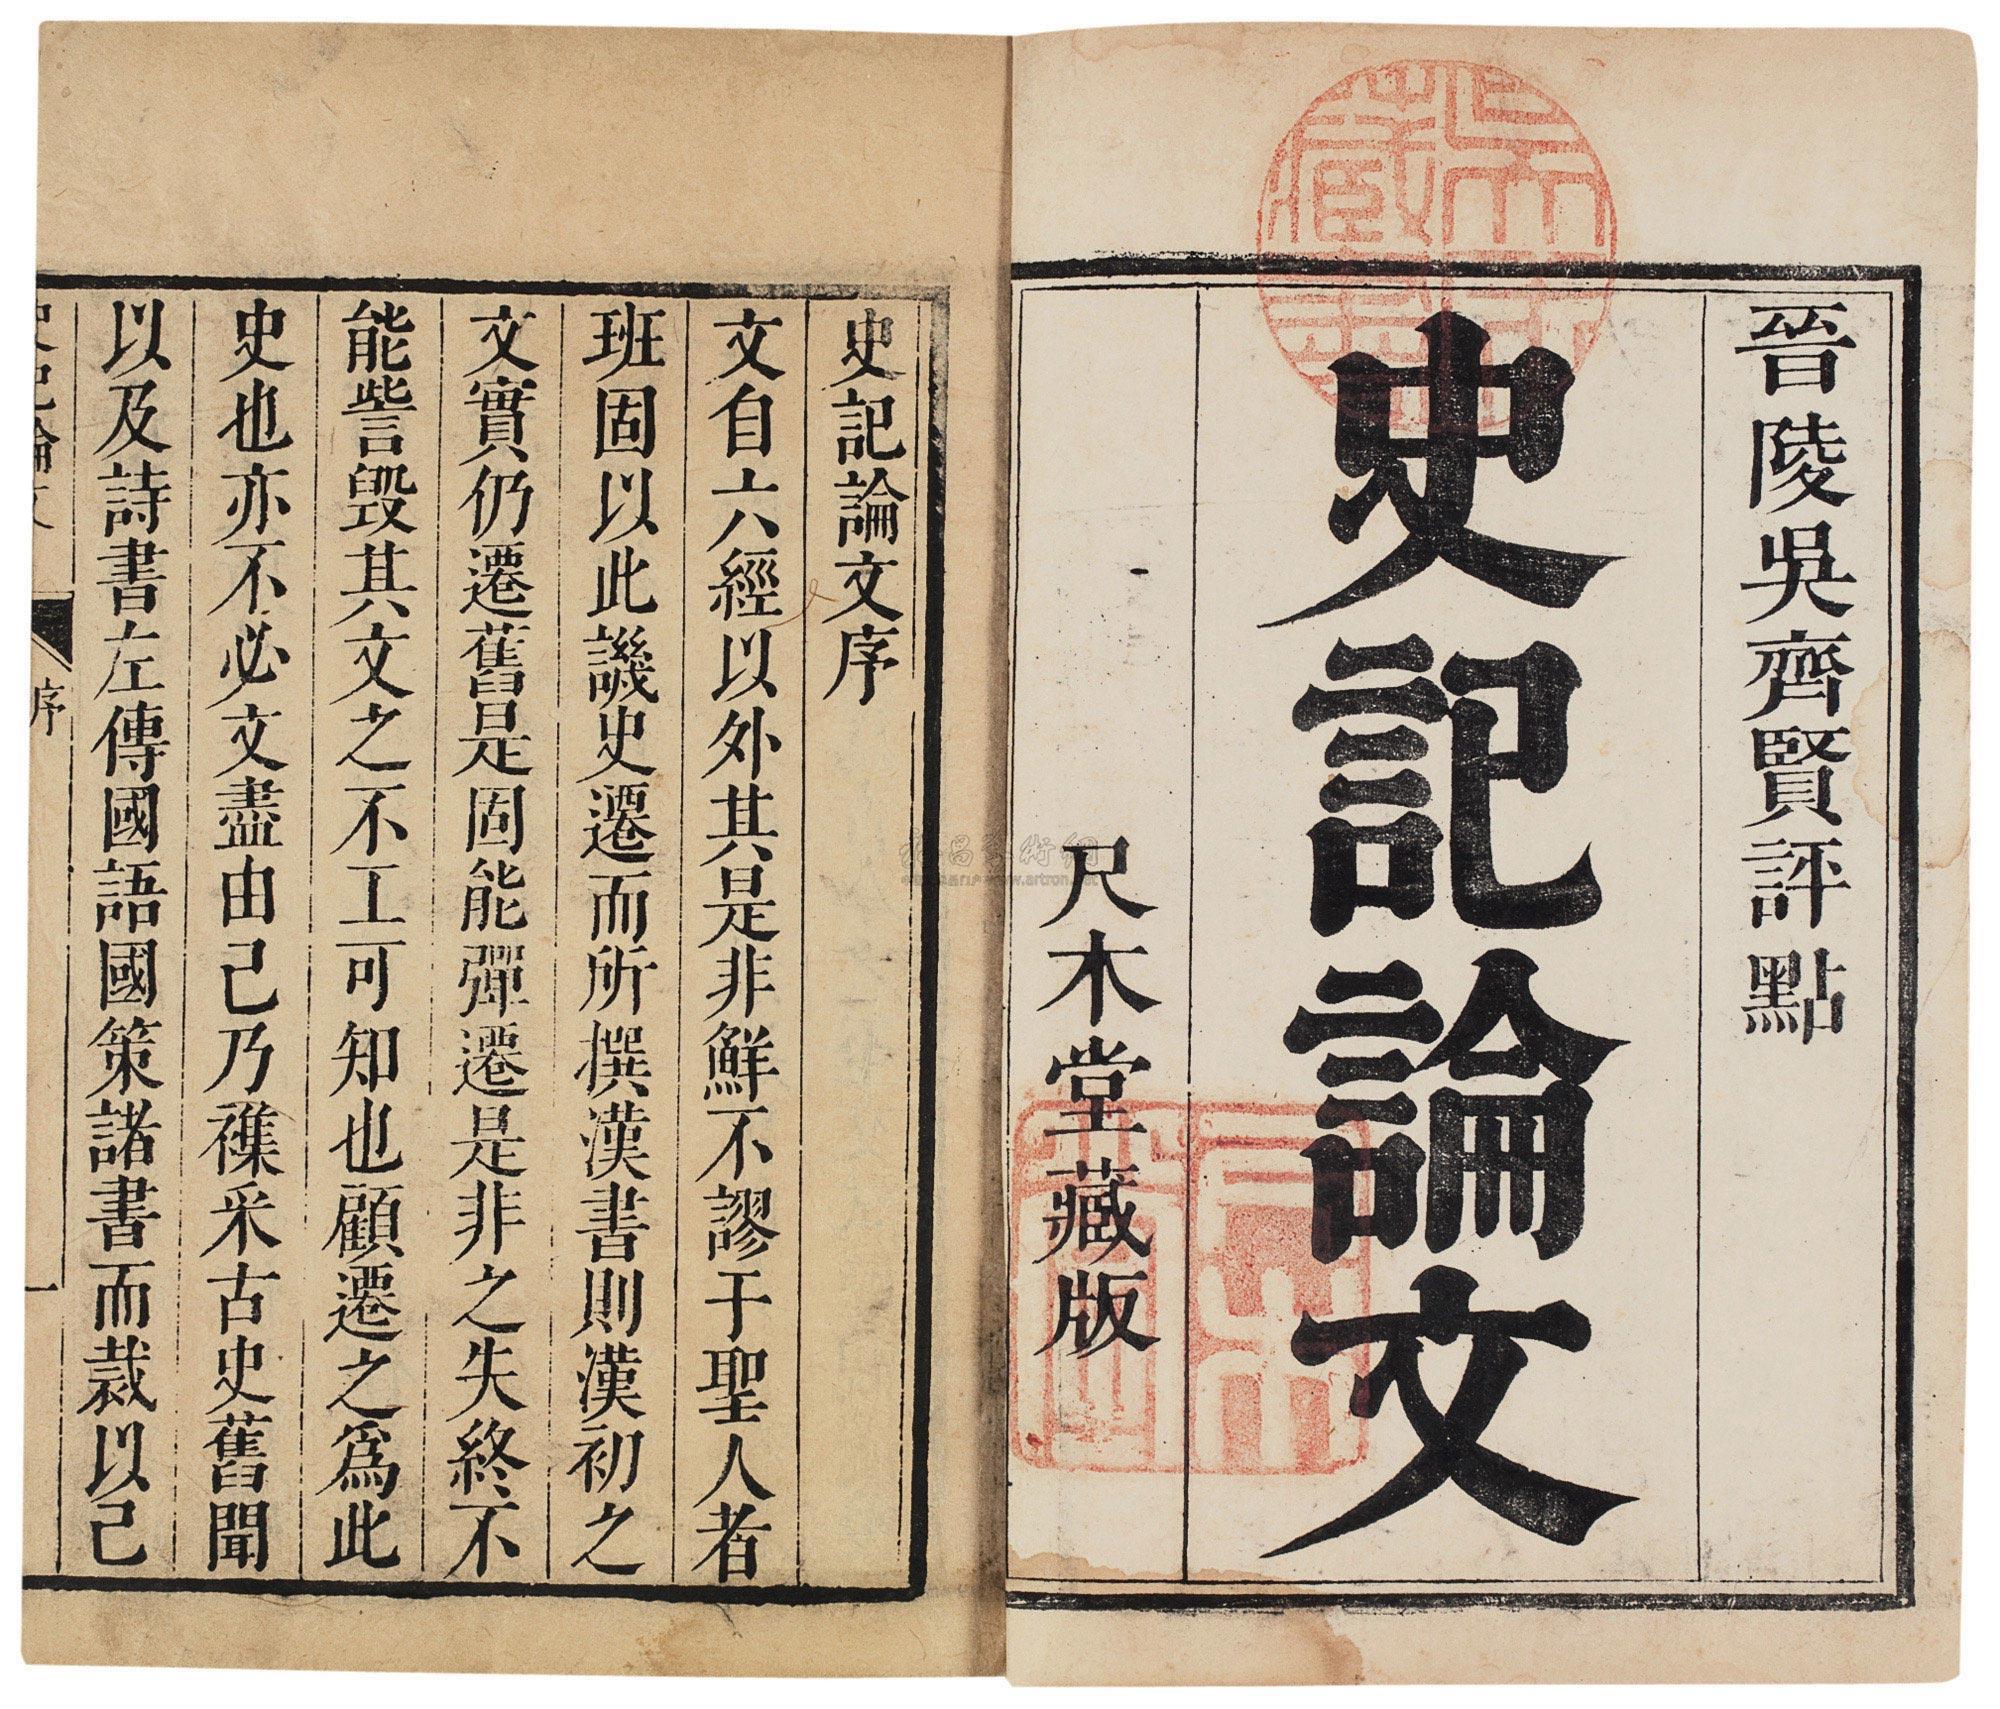 晉陵吳齊賢評點
史記論文
尺木堂藏版
史記論文序
文自六經以外其是非鮮不謬于聖人者
班固以此譏史遷而所撰漢書則漢初之
文實仍遷舊是固能彈遷是非之失終不
能訾毀其文之不工可知也顧遷之為此
史也亦不必文盡由己乃襍采古史舊聞
以及詩書左傳國語國策諸書而裁以己
序
一
www.artron.net